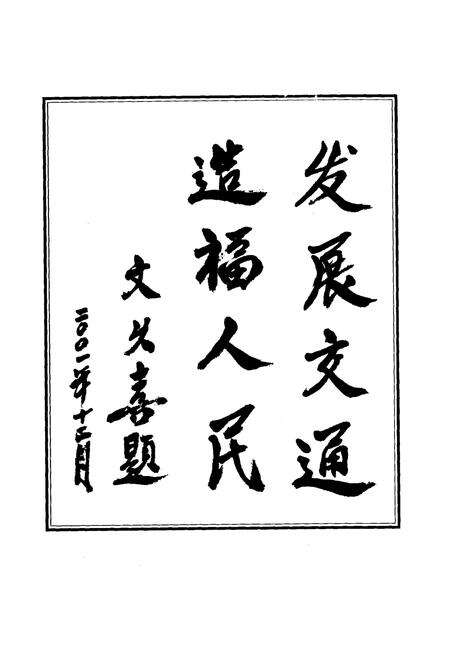 发展交通
造福人民
文喜题
二〇〇一年十二月